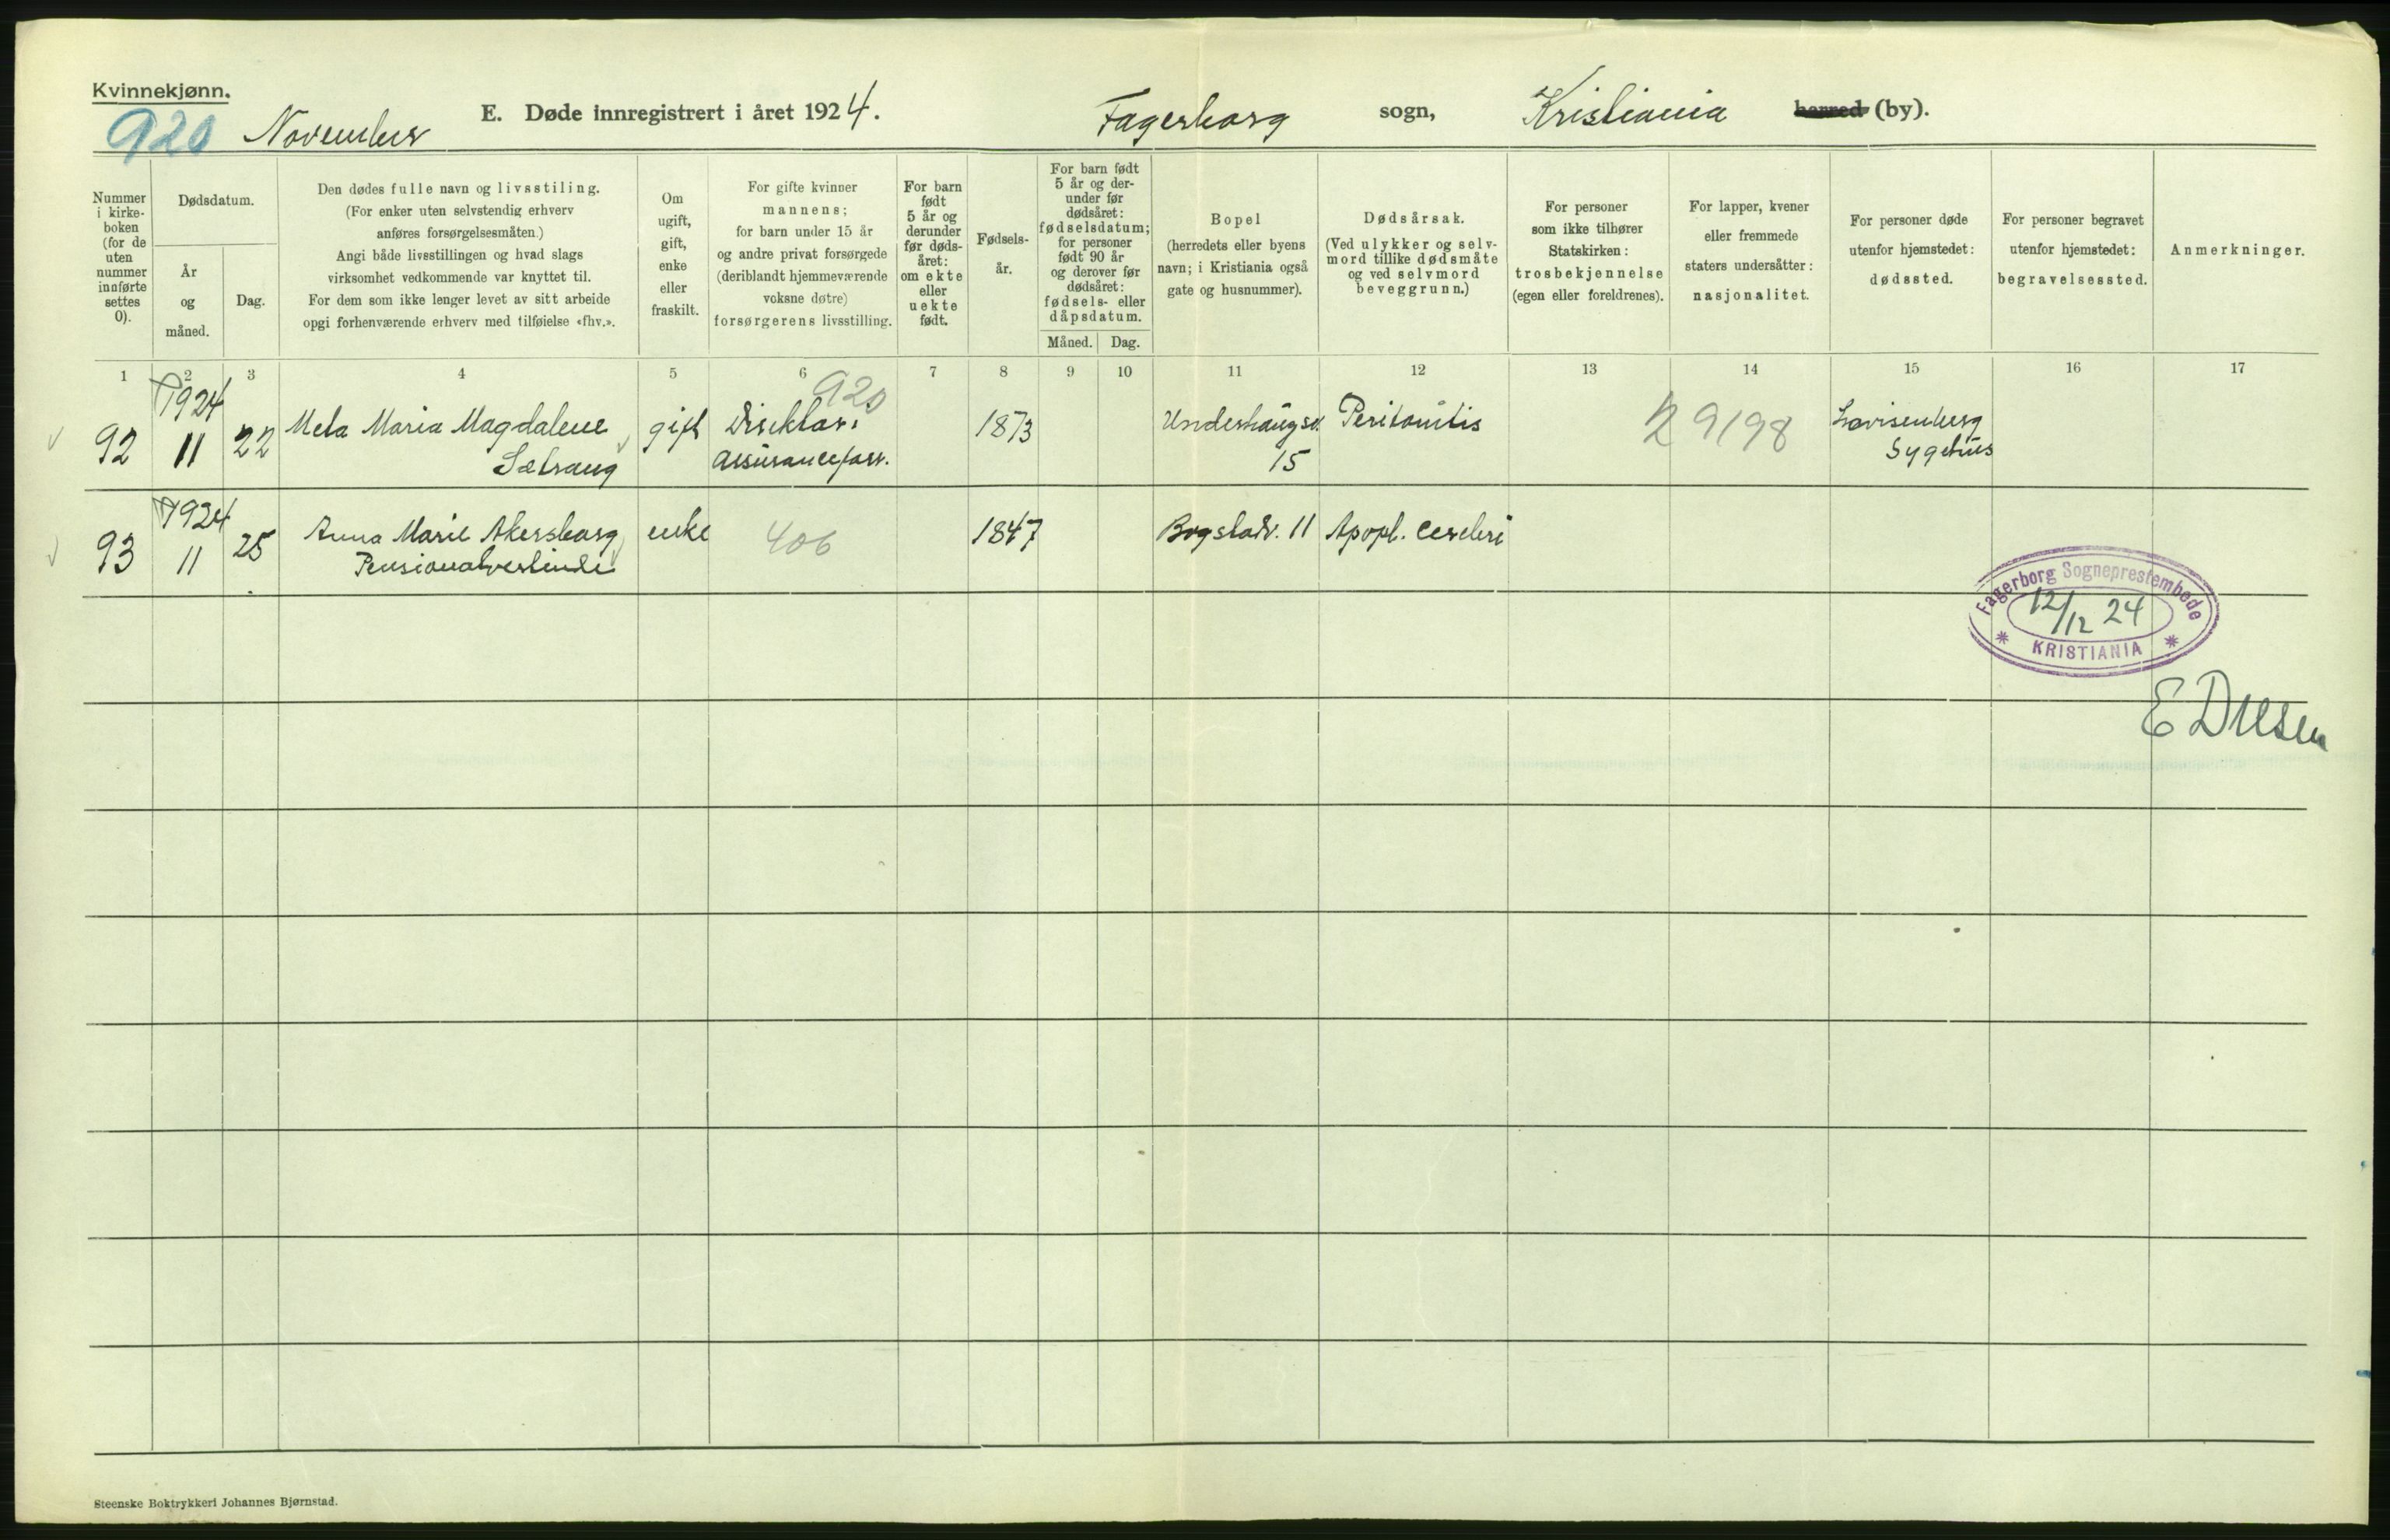 Kvinnekjønn.
920 November
E. Døde innregistrert i året 1924.
Fagerborg sogn, Kristiania herred (by).
Nummer i kirke- boken (for de uten nummer innførte settes 0).
Dødsdatum.
År og måned.
Dag.
Den dødes fulle navn og livsstiling.
(For enker uten selvstendig erhverv
anføres forsørgelsesmåten.)
Angi både livsstillingen og hvad slags
virksomhet vedkommende var knyttet til.
For dem som ikke lenger levet av sitt arbeide
opgi forhenværende erhverv med tilføielse «fhv.».
Om
ugift,
gift,
enke
eller
fraskilt.
For gifte kvinner
mannens;
for barn under 15 år
og andre privat forsørgede
(deriblandt hjemmeværende
voksne døtre)
forsørgerens livsstilling.
For barn
født
5 år og
derunder
før døds-
året:
om ekte
eller
uekte
født.
Fødsels-
år.
For barn født
5 år og der-
under før
dødsåret:
fødselsdatum;
for personer
født 90 år
og derover før
dødsåret:
fødsels- eller
dåpsdatum.
Måned. Dag.
Bopel
(herredets eller byens
navn; i Kristiania også
gate og husnummer).
Dødsårsak.
(Ved ulykker og selv-
mord tillike dødsmåte
og ved selvmord
beveggrunn.)
For personer
som ikke tilhører
Statskirken:
trosbekjennelse
(egen eller foreldrenes).
For lapper, kvener
eller fremmede
staters undersåtter:
nasjonalitet.
For personer døde
utenfor hjemstedet:
dødssted.
For personer begravet
utenfor hjemstedet:
begravelsessted.
Anmerkninger.
1 2 3 4 5 6 7 8 9 10 11 12 13 14 15 16 17
920
92 1924 11 22 Meta Maria Magdalene Sætrang gift Direktør i Assuranceforr. 1873 Underhaugsv. 15 Peritonitis 29198 Lovisenberg Sygehus
93 1924 11 25 Anna Marie Akersborg Pensionatvertinde enke 406 1847 Bogstadv. 11 Apopl. cerebri
Fagerborg Sogneprestembede
12/12 24
KRISTIANIA
E Duesen
Steenske Boktrykkeri Johannes Bjørnstad.